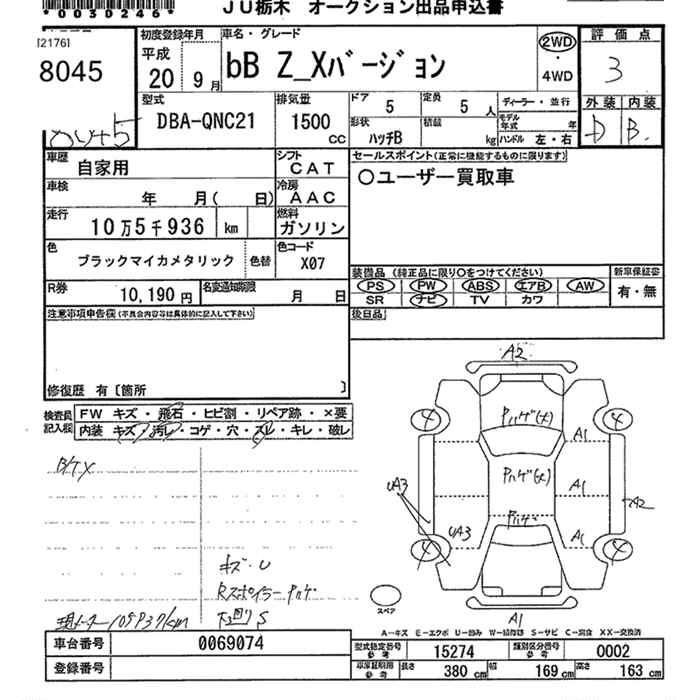 *0030246*
JU栃木 オークション出品申込書
[2176]
8045
初度登録年月
平成
20 9 月
車名・グレード
bB Z_Xバージョン
2WD
・
4WD
評価点
3
型式
DBA-QNC21
排気量
1500
CC
ドア 5
定員 5 人
ディーラー・並行
形状 ハッチB
積載 kg
モデル年式 年
ハンドル 左・右
外装 内装
D B
車歴
自家用
シフト
CAT
セールスポイント(正常に機能するものに限ります)
○ユーザー買取車
車検
年 月( 日)
冷房
AAC
走行
10万5千936 km
燃料
ガソリン
色
ブラックマイカメタリック
色替
色コード
X07
装備品 (純正品に限り○をつけてください)
新車保証書
PS PW ABS エアB AW
有・無
SR ナビ TV カワ
R券
10,190 円
名変通知期限
月 日
後日品
注意事項申告欄(不具合内容等は具体的に記入して下さい)
修復歴 有〔箇所 〕
検査員
記入欄
FW キズ・飛石・ヒビ割・リペア跡・×要
内装 キズ・汚レ・コゲ・穴・スレ・キレ・破レ
A2
4 4
Pハゲ(大)
A1
Pハゲ(大)
A1
UA3
A2
Pハゲ
UA3
A1
4 4
キズ・U
Rスポイラー Pハゲ
下回りS
現メーター 105937km
スペア
A1
A-キズ E-エクボ U-凹み W-補修跡 S-サビ C-腐食 XX-交換済
車台番号
0069074
型式指定番号
参考
15274
類別区分番号
参考
0002
登録番号
車庫証明用
参考
長さ 380 cm
幅 169 cm
高さ 163 cm